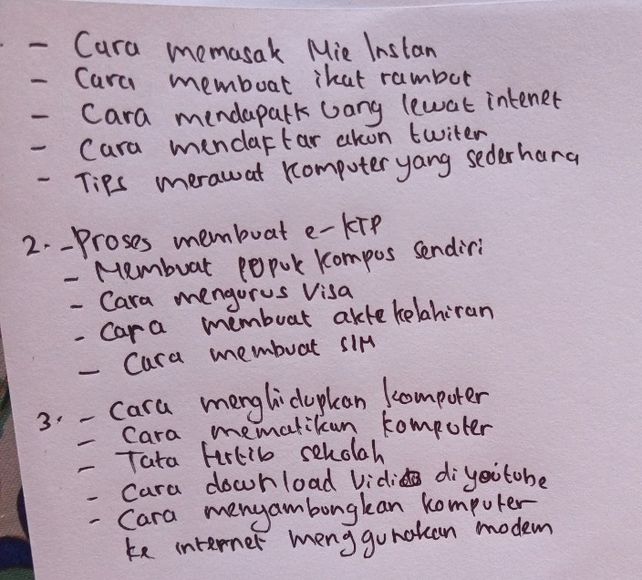 - Cara memasak Mie Instan
- Cara membuat ikat rambut
- Cara mendapatk Uang lewat intenet
- Cara mendaftar akun twiter
- Tips merawat Komputer yang sederhana
2. - Proses membuat e-KTP
- Membuat popuk Kompos sendiri
- Cara mengurus Visa
- Cara membuat akte kelahiran
- Cara membuat SIM
3. - Cara menghidupkan komputer
- Cara mematikan komputer
- Tata tertib sekolah
- Cara download Vidio di youtube
- Cara menyambungkan komputer
ke internet menggunakan modem